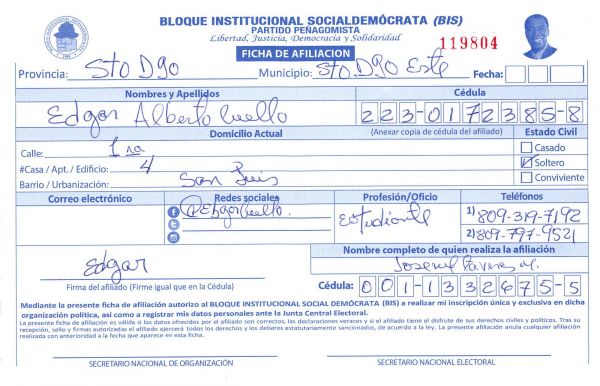 BLOQUE INSTITUCIONAL SOCIALDEMÓCRATA (BIS)
PARTIDO PEÑAGOMISTA
Libertad, Justicia, Democracia y Solidaridad
119804
FICHA DE AFILIACION
Provincia: Sto Dgo Municipio: Sto. Dgo Este Fecha:
Nombres y Apellidos Cédula
Edgar Alberto Cuello 223-0172385-8
Domicilio Actual (Anexar copia de cédula del afiliado) Estado Civil
Calle: 1 ra Casado
#Casa / Apt. / Edificio: 4 Soltero
Barrio / Urbanización: San Luis Conviviente
Correo electrónico Redes sociales Profesión/Oficio Teléfonos
@EdgarCuello. Estudiante 1) 809-319-7192
2) 809-797-9521
Nombre completo de quien realiza la afiliación
Edgar
Firma del afiliado (Firme igual que en la Cédula) Cédula: 001-1332675-5
Mediante la presente ficha de afiliación autorizo al BLOQUE INSTITUCIONAL SOCIAL DEMÓCRATA (BIS) a realizar mi inscripción única y exclusiva en dicha
organización política, así como a registrar mis datos personales ante la Junta Central Electoral.
La presente ficha de afiliación es válida si los datos ofrecidos por el afiliado son correctos, las declaraciones veraces y si el afiliado tiene el disfrute de sus derechos civiles y políticos. Tras su
recepción, sello y firmas autorizadas el afiliado ejercerá todos los derechos y los deberes estatutariamente sancionados, de acuerdo a la ley. La presente afiliación anula cualquier afiliación
realizada con anterioridad a la fecha que aparece en esta ficha.
SECRETARIO NACIONAL DE ORGANIZACIÓN SECRETARIO NACIONAL ELECTORAL